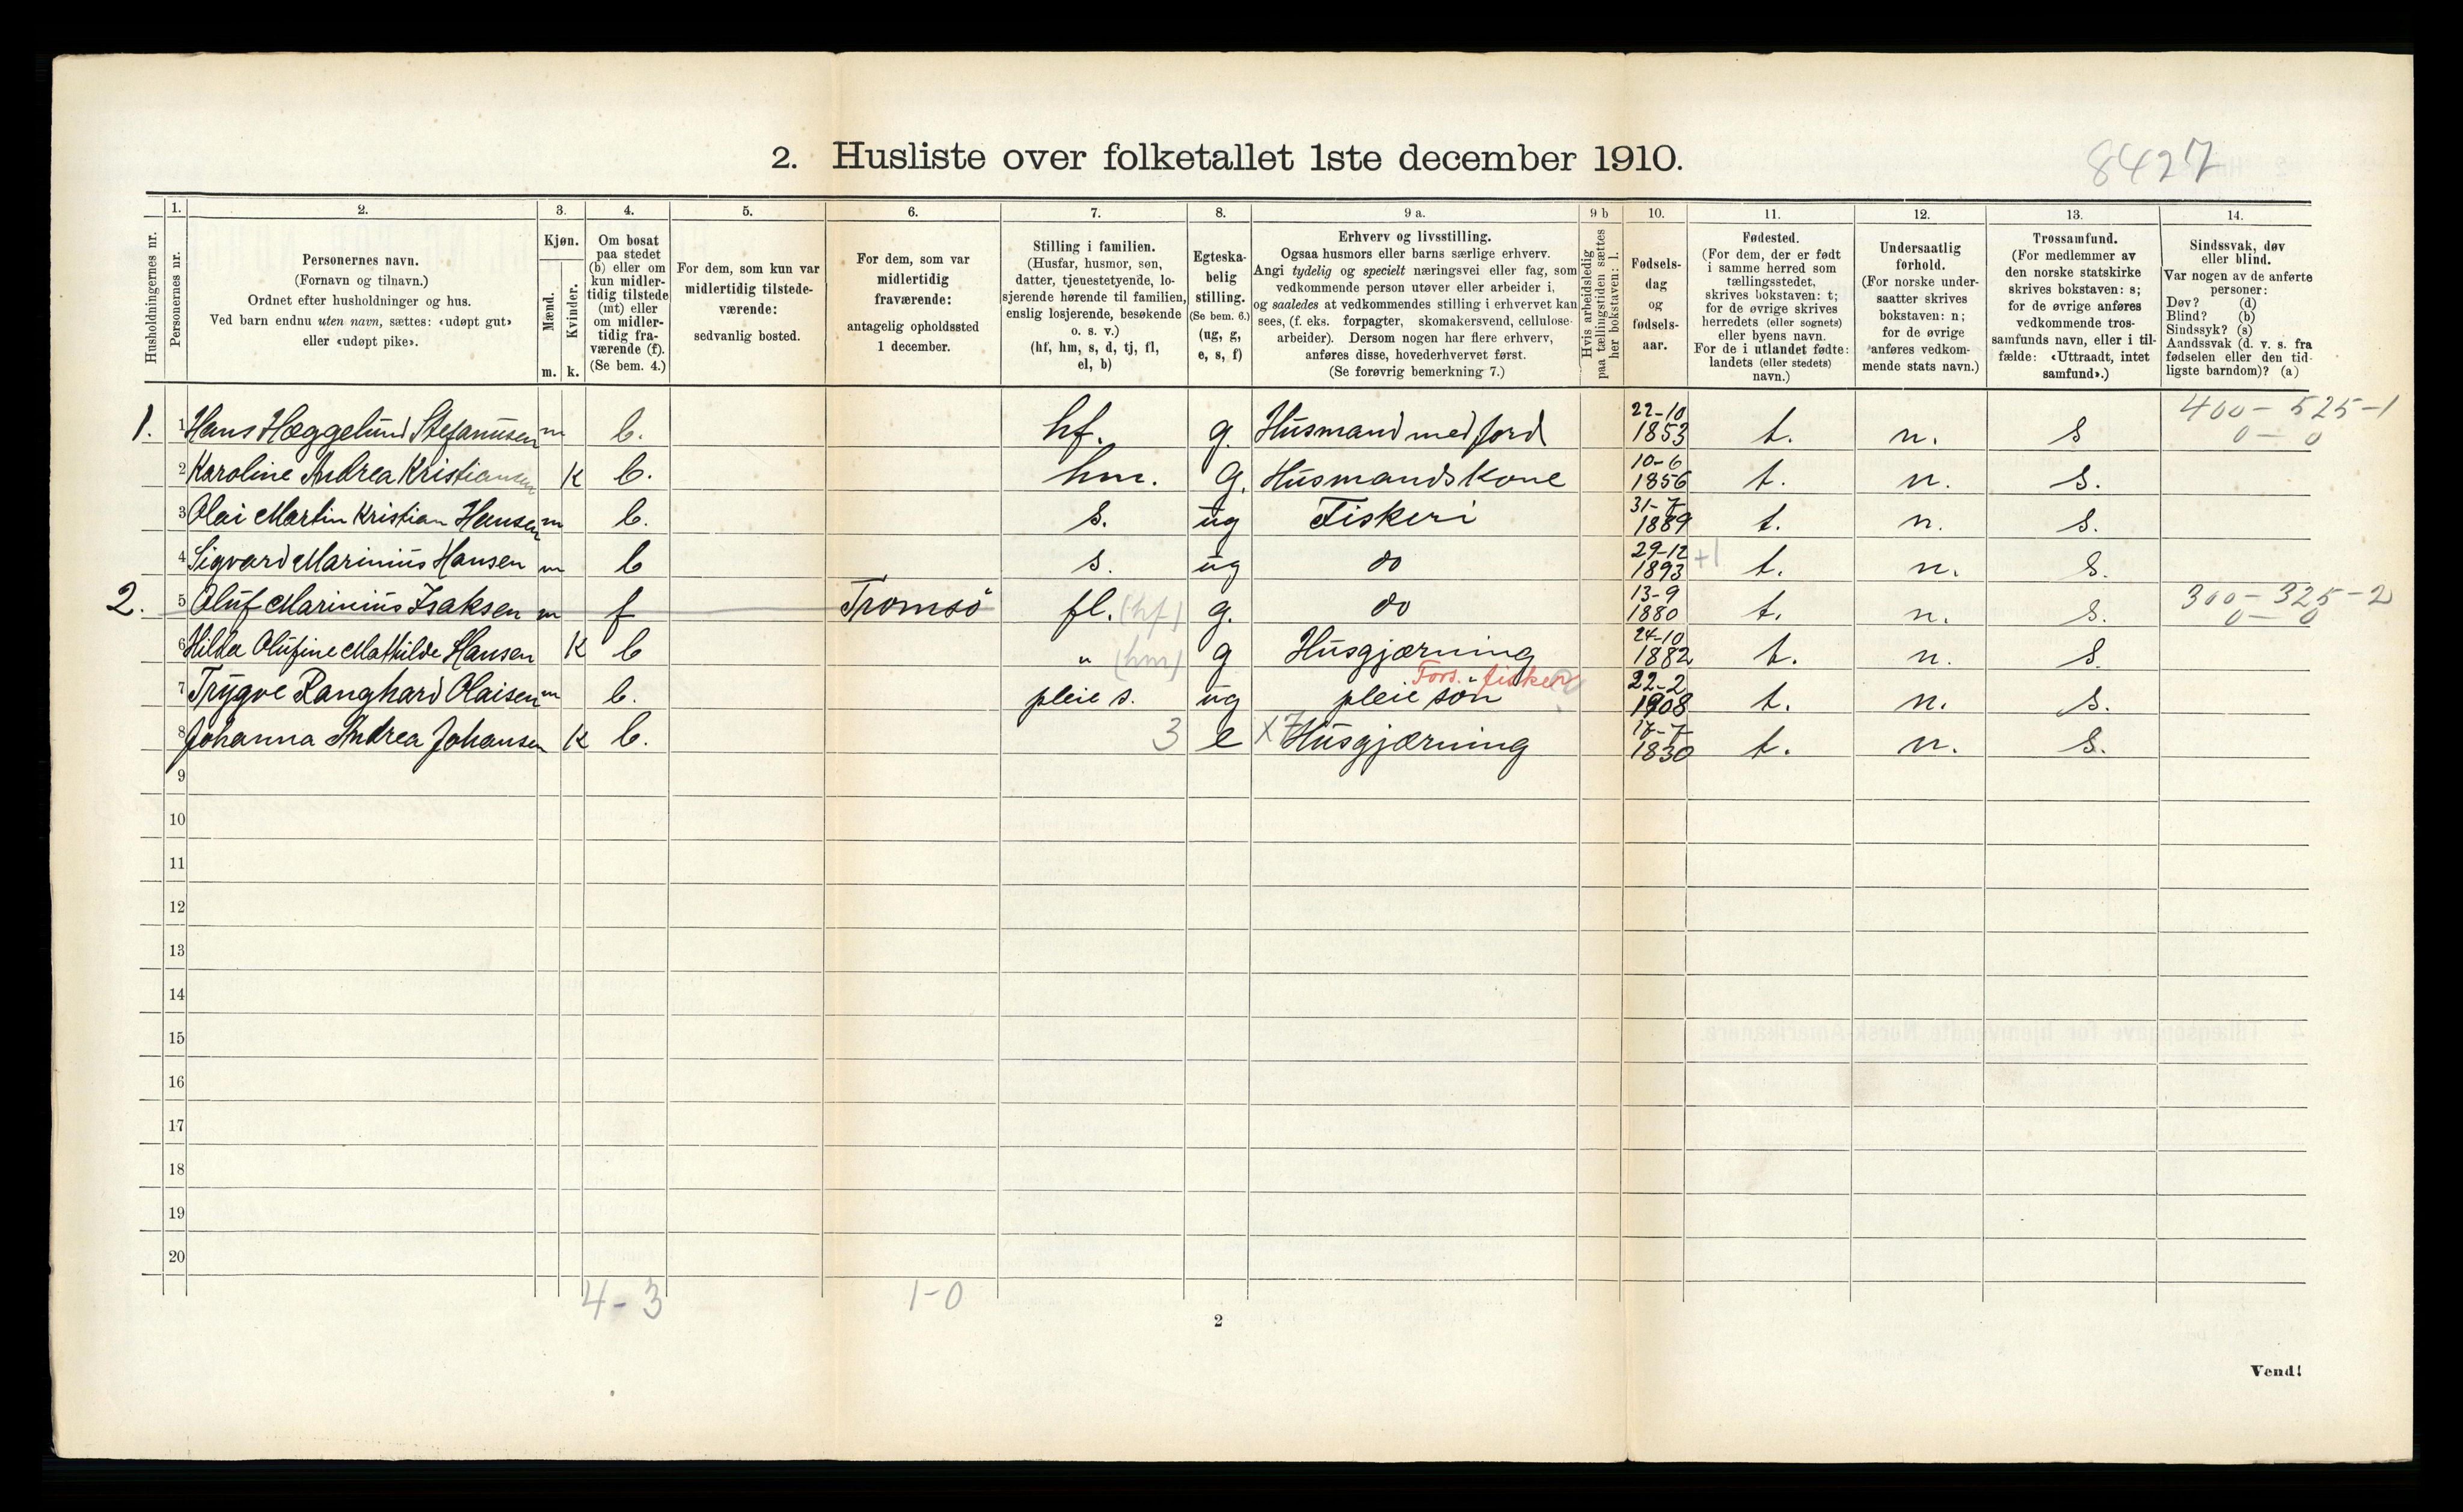 2. Husliste over folketallet 1ste december 1910.
8427
Husholdningernes nr.
1.
Personernes nr.
2.
Personernes navn.
(Fornavn og tilnavn.)
Ordnet efter husholdninger og hus.
Ved barn endnu uten navn, sættes: «udøpt gut»
eller «udøpt pike».
3.
Kjøn.
Mænd.
Kvinder.
m. k.
4.
Om bosat
paa stedet
(b) eller om
kun midler-
tidig tilstede
(mt) eller
om midler-
tidig fra-
værende (f).
(Se bem. 4.)
5.
For dem, som kun var
midlertidig tilstede-
værende:
sedvanlig bosted.
6.
For dem, som var
midlertidig
fraværende:
antagelig opholdssted
1 december.
7.
Stilling i familien.
(Husfar, husmor, søn,
datter, tjenestetyende, lo-
sjerende hørende til familien,
enslig losjerende, besøkende
o. s. v.)
(hf, hm, s, d, tj, fl,
el, b)
8.
Egteska-
belig
stilling.
(Se bem. 6.)
(ug, g,
e, s, f)
9 a.
Erhverv og livsstilling.
Ogsaa husmors eller barns særlige erhverv.
Angi tydelig og specielt næringsvei eller fag, som
vedkommende person utøver eller arbeider i,
og saaledes at vedkommendes stilling i erhvervet kan
sees, (f. eks. forpagter, skomakersvend, cellulose-
arbeider). Dersom nogen har flere erhverv,
anføres disse, hovederhvervet først.
(Se forøvrig bemerkning 7.)
9 b
Hvis arbeidsledig
paa tællingstiden sættes
her bokstaven: l.
10.
Fødsels-
dag
og
fødsels-
aar.
11.
Fødested.
(For dem, der er født
i samme herred som
tællingsstedet,
skrives bokstaven: t;
for de øvrige skrives
herredets (eller sognets)
eller byens navn.
For de i utlandet fødte:
landets (eller stedets)
navn.)
12.
Undersaatlig
forhold.
(For norske under-
saatter skrives
bokstaven: n;
for de øvrige
anføres vedkom-
mende stats navn.)
13.
Trossamfund.
(For medlemmer av
den norske statskirke
skrives bokstaven: s;
for de øvrige anføres
vedkommende tros-
samfunds navn, eller i til-
fælde: «Uttraadt, intet
samfund».)
14.
Sindssvak, døv
eller blind.
Var nogen av de anførte
personer:
Døv? (d)
Blind? (b)
Sindssyk? (s)
Aandssvak (d. v. s. fra
fødselen eller den tid-
ligste barndom)? (a)
1. 1 Hans Hæggelund Stefanusen m b. hf. g. Husmand med jord 22-10 1853 t. n. s 400-525-1 0-0
2 Karoline Andrea Kristiansen k b. hm. g. Husmandskone 10-6 1856 t. n. s.
3 Olai Martin Kristian Hansen m b. s. ug Fiskeri 31-7 1889 t. n. s.
4 Sigvard Marinius Hansen m b s. ug do 29-12 1893 +1 t. n. s.
2. 5 Oluf Marinius Isaksen m f Tromsö fl. (hf) g. do 13-9 1880 t. n. s. 300-325-2 0-0
6 Hilda Olufine Mathilde Hansen k b " (hm) g Husgjærning 24-10 1882 t. n. s
7 Trygve Ranghard Olaisen m b. pleie s. ug pleie sön Fors. fisker 22-2 1908 t. n. s.
8 Johanna Andrea Johansen k b. 3 e X7 Husgjærning 17-7 1830 t. n. s.
9
10
11
12
13
14
15
16
17
18
19
20
4-3 1-0
2
Vend!